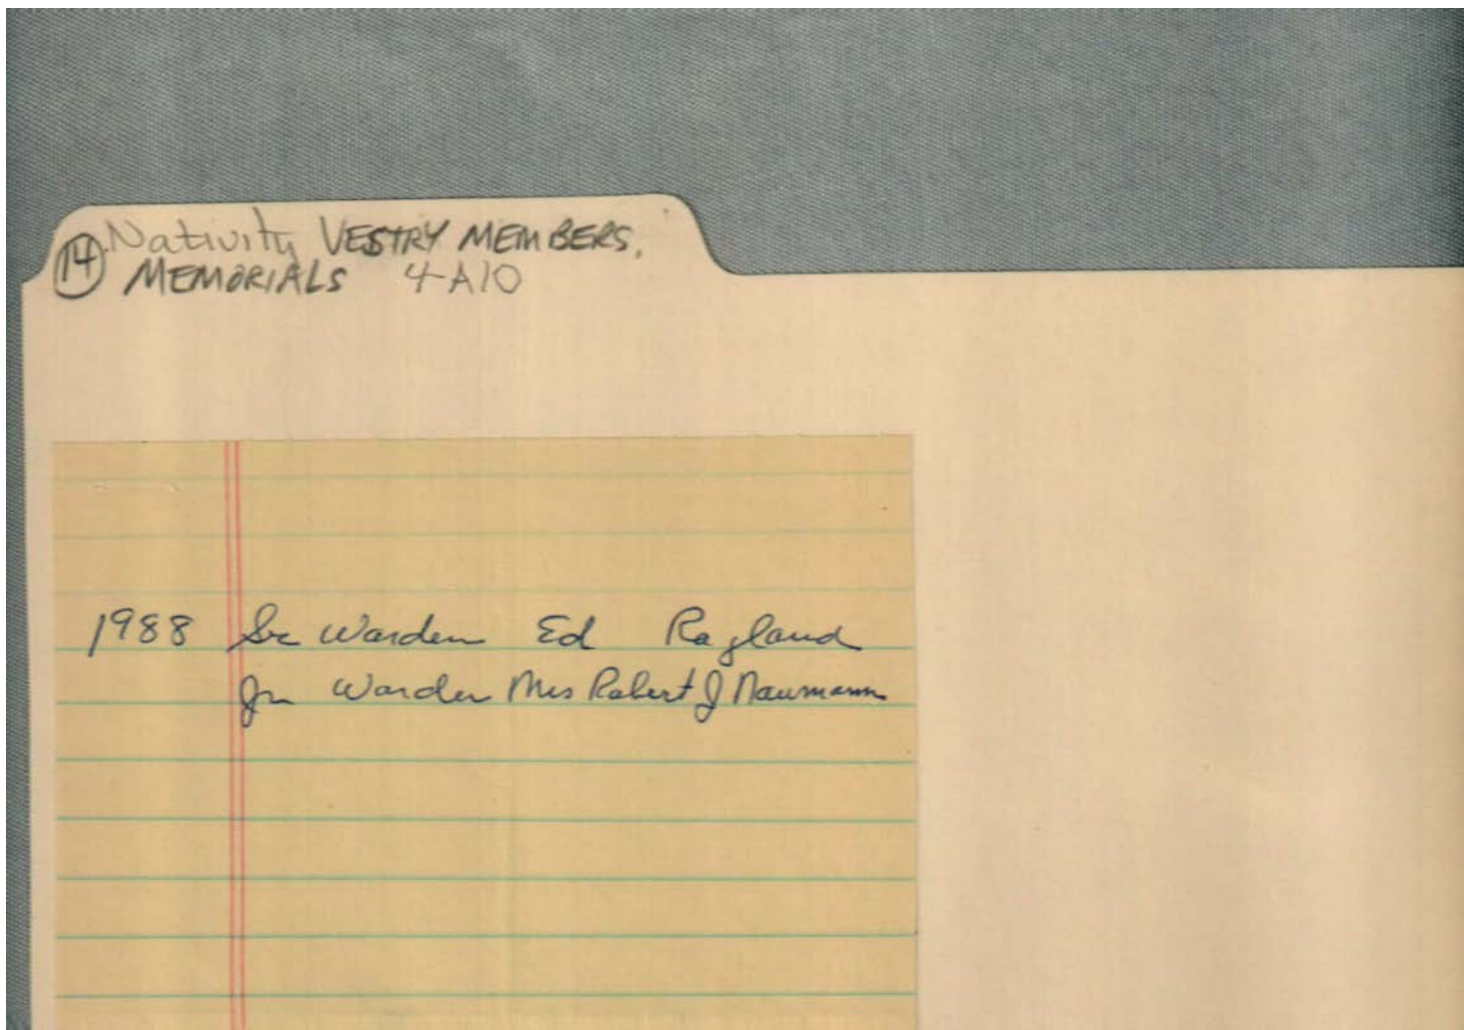 14 Nativity VESTRY MEMBERS,
MEMORIALS 4-A10
1988 Sr Warden Ed Ragland
Jr Warden Mrs Robert J Naumann